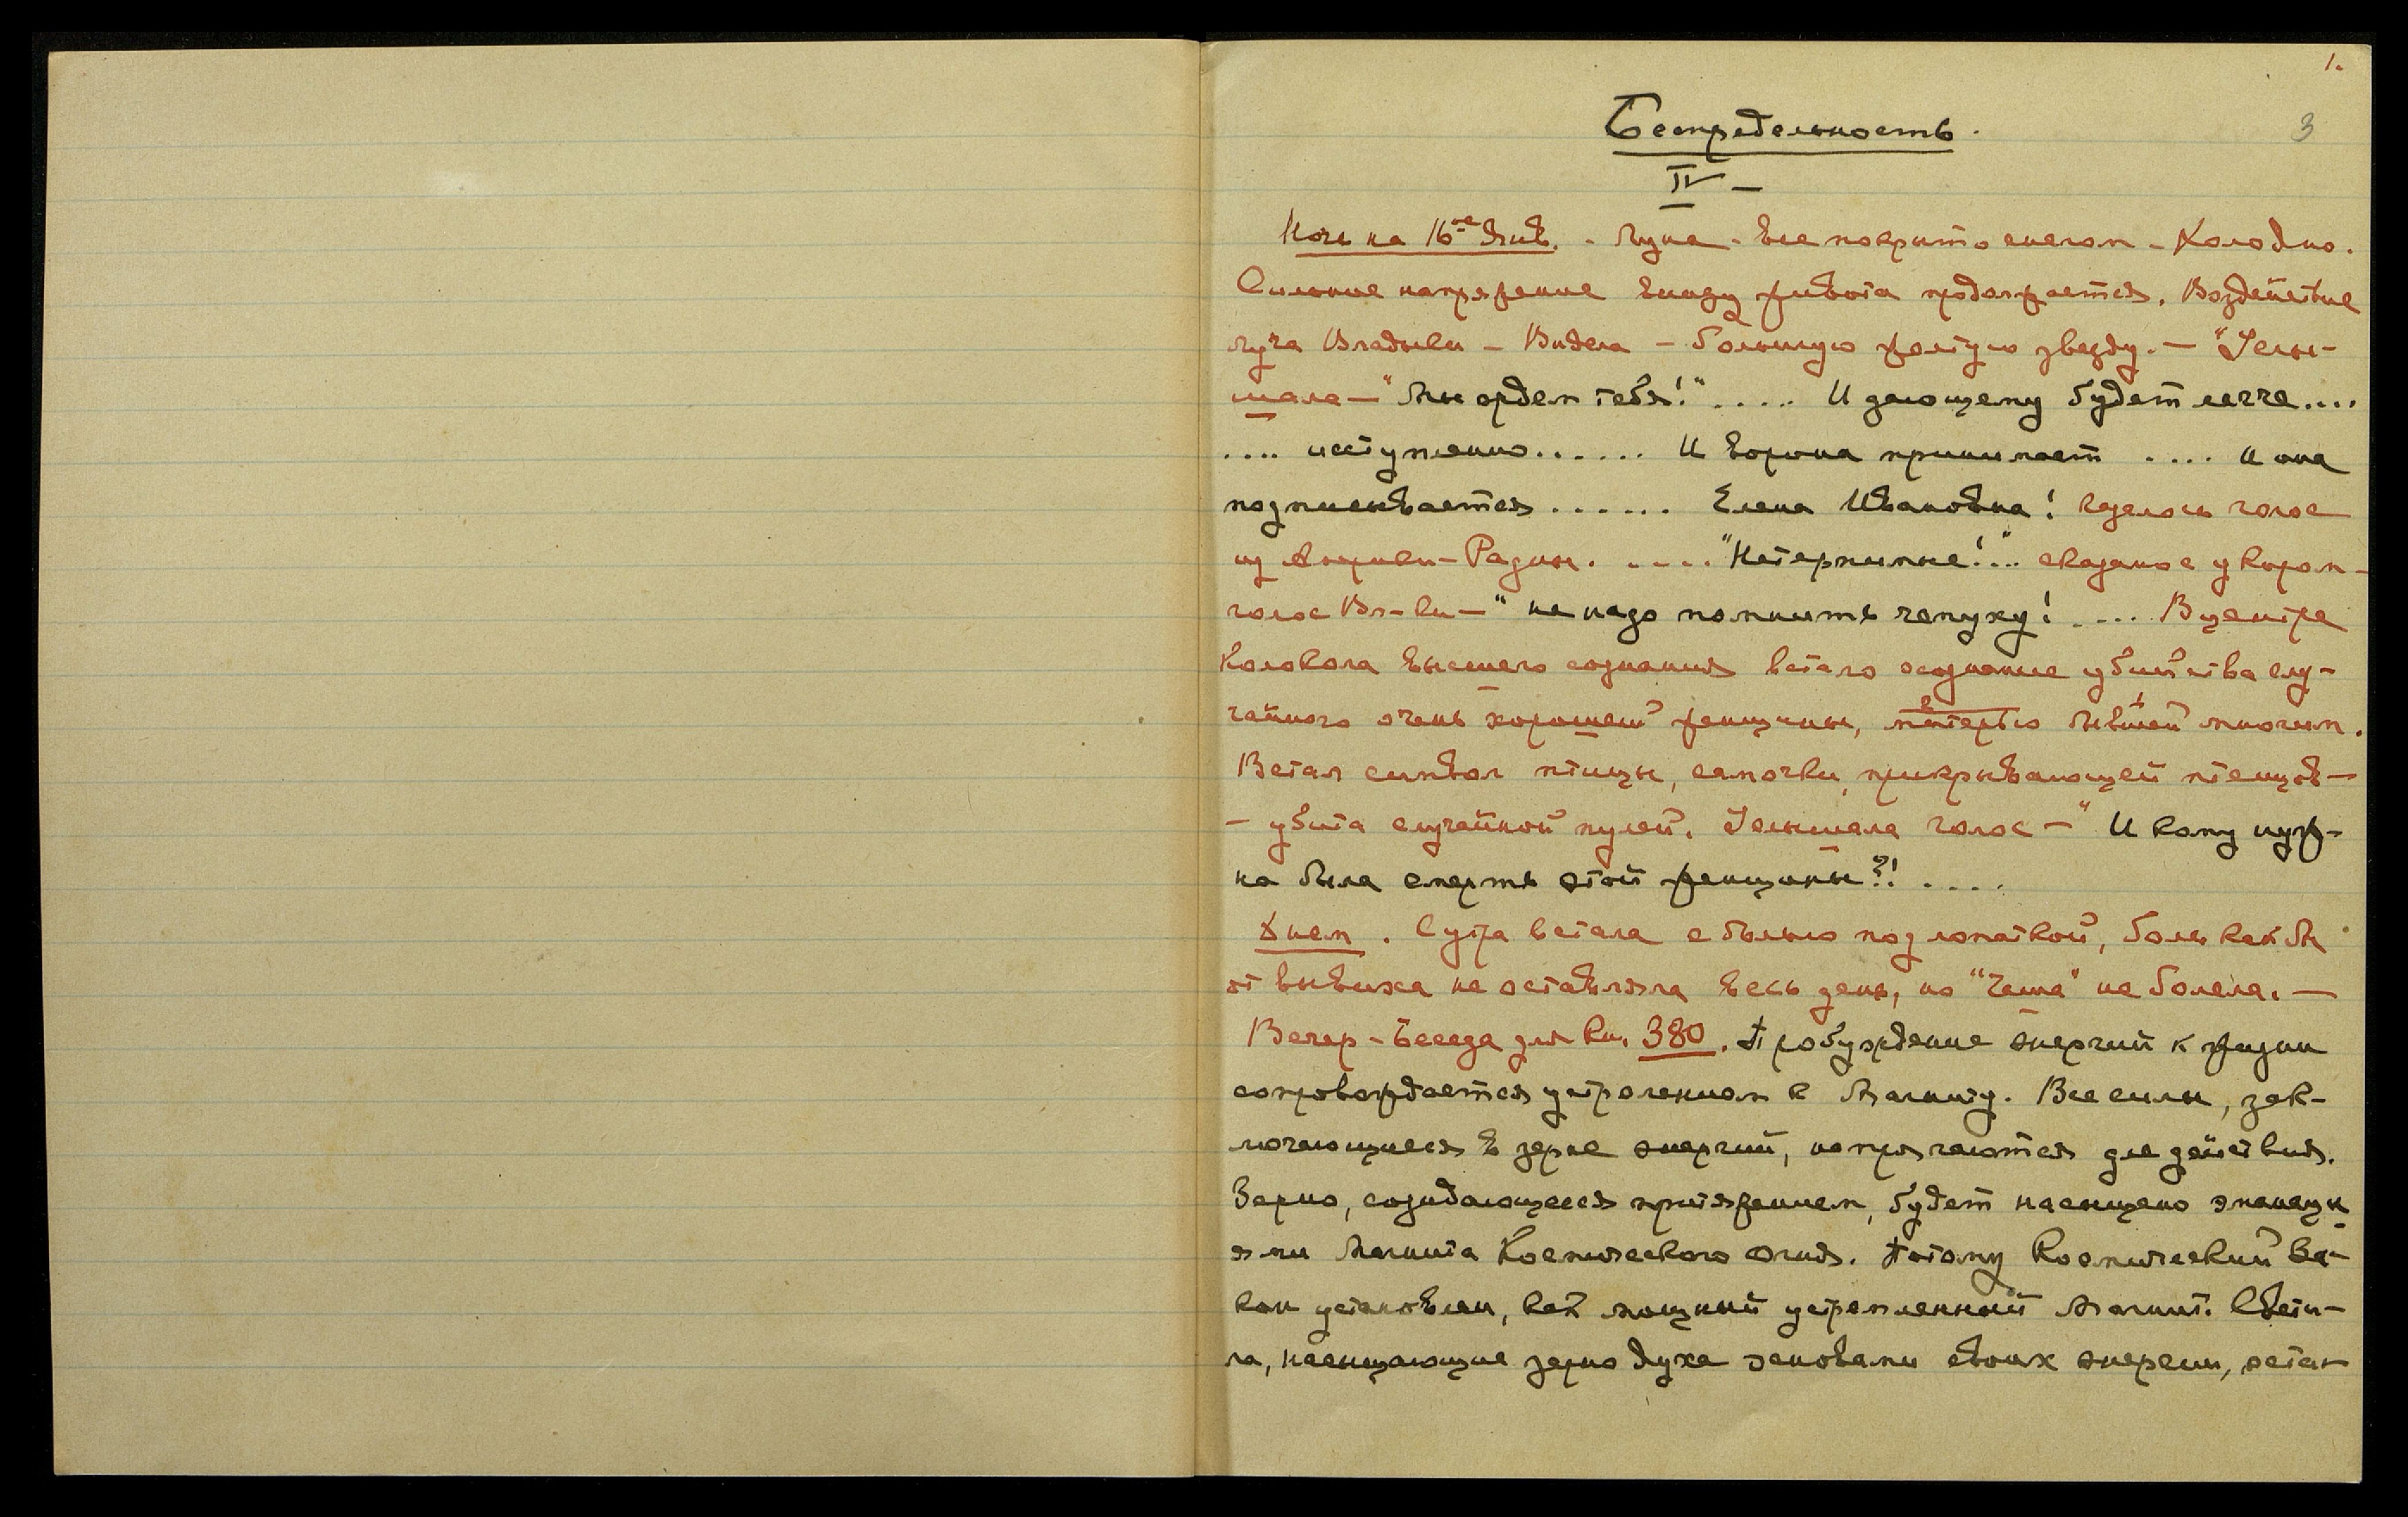 1.
3
Беспредельность.
IV –
Ночь на 16ое Янв. - Луна - Все покрыто снегом - Холодно.
Сильное напряжение внизу живота продолжается. Воздействие
луча Владыки – Видела – большую желтую звезду. – "Услы-
шала – "Мы ждем тебя!" ..... И дающему будет легче....
.... исступленно...... И Ворона принимает .... и она
подписывается ...... Елена Ивановна! казалось голос
из – Радны. ..... "Нетерпимые!.." сказано с укором –
голос Вл-ки – " не надо помнить чепуху! .... В центре
Колокола высшего сознания встало осознание убийства слу-
чайного очень хорошей женщины, матерью бывшей многим.
Встал символ птицы, самочки, прикрывающей птенцов –
– убита случайной пулей. Услышала голос – " И кому нуж-
на была смерть этой женщины?! ....
Днем. С утра встала с болью под лопаткой, боль как бы
от вывиха не оставляла весь день, но "Чаша" не болела. –
Вечер – Беседа для Кн. 380. Пробуждение энергий к жизни
сопровождается устремлением к Магниту. Все силы, зак-
лючающиеся в зерне энергий, напрягаются для действия.
Зерно, созидающееся притяжением, будет насыщено эманаци
ями Магнита Космического Огня. Потому Космический За-
кон установлен, как мощный устремленный Магнит. Свети-
ла, насыщающие зерно духа основами своих энергии, остаю